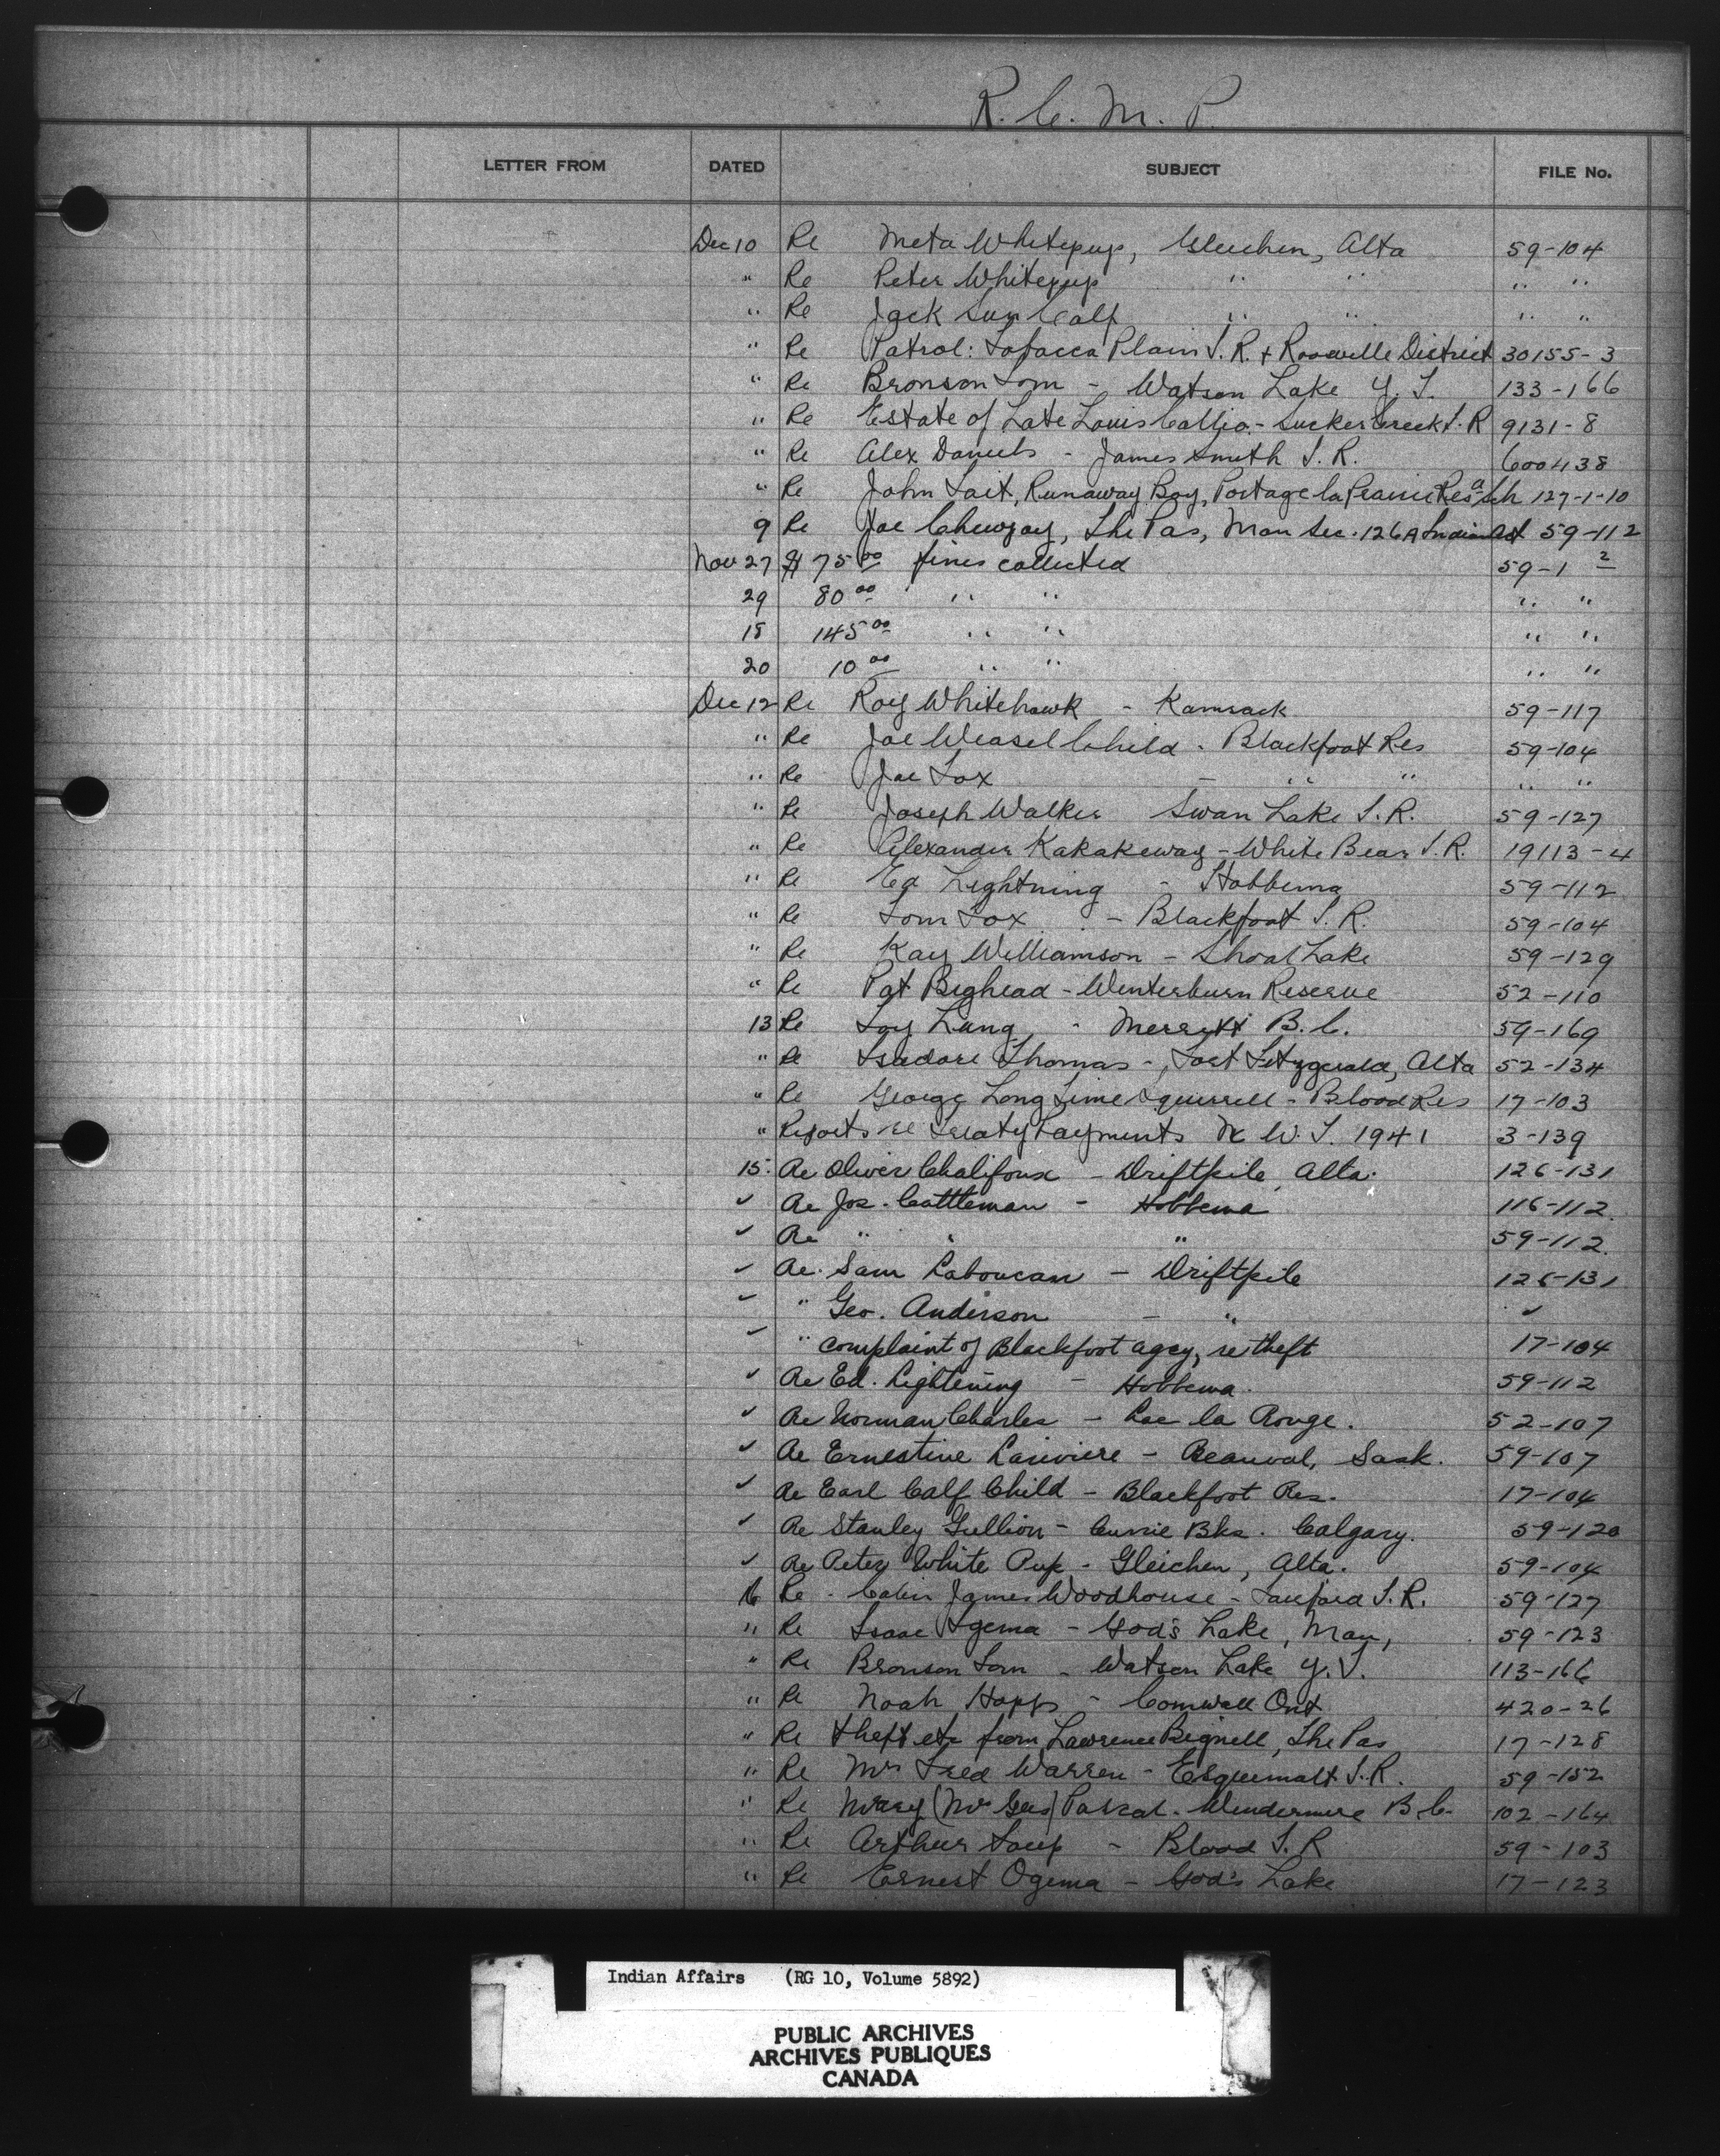 R. C. M. P.
LETTER FROM DATED SUBJECT FILE No.
Dec 10 Re Meta Whitepup, Gleichen, Alta 59-104
" Re Peter Whitepup " " " "
" Re Jack Sun Calf " " " "
" Re Patrol: Tobacca Plain I.R. + Roosville District 30155-3
" Re Bronson Tom - Watson Lake Y.T. 133-166
" Re Estate of Late Louis Callio - Sucker Creek I.R 9131-8
" Re Alex Daniels - James Smith I.R. 600438
" Re John Tait, Runaway Boy, Portage la Prairie Res Sch 127-1-10
9 Re Joe, The Pas, Man Sec. 126A Indian Act 59-112
Nov 27 $ 75 00 fines collected 59-1 2
29 80 00 " " " "
18 145 00 " " " "
20 10 00 " " " "
Dec 12 Re Roy Whitehawk - Kamsack 59-117
" Re Joe Weasel Child - Blackfoot Res 59-104
" Re Joe Fox - " " " "
" Re Joseph Walker Swan Lake I.R. 59-127
" Re Alexander Kakakeway - White Bear I.R. 19113-4
" Re Ed Lightning - Hobbema 59-112
" Re Tom Fox - Blackfoot I.R. 59-104
" Re Kay Williamson - Shoal Lake 59-129
" Re Pat Bighead - Winterburn Reserve 52-110
13 Re Toy Lung - Merritt B.C. 59-169
" Re Isadore Thomas -, Fort Fitzgerald, Alta 52-134
" Re George Long Time Squirrell - Blood Res 17-103
" Reports re Treaty Payments N.W.T. 1941 3-139
15. Re Oliver Chalifoux - Driftpile, Alta. 126-131
" Re Jos. Cattleman - Hobbema 116-112.
" Re " " " 59-112.
" Re. Sam Laboucan - Driftpile 126-131
" " Geo. Anderson - " "
" " complaint of Blackfoot agcy, re theft 17-104
" Re Ed. Lightening - Hobbema. 59-112
" Re Norman Charles - Lac la Ronge. 52-107
" Re Ernestine Lariviere - Beauval, Sask. 59-107
" Re Earl Calf Child - Blackfoot Res. 17-104
" Re Stanley Gullion - Currie Bks. Calgary. 59-120
" Re Peter White Pup - Gleichen, Alta. 59-104
16 Re James Woodhouse - I.R. 59-127
" Re Isaac Ogema - God's Lake, Man, 59-123
" Re Bronson Tom - Watson Lake Y.T. 113-166
" Re Noah Hopps - Cornwall Ont 420-26
" Re theft etc from Lawrence Bignell, The Pas 17-128
" Re Mrs Fred Warren - Esquimalt I.R. 59-152
" Re Mary (Mrs Geo) Pascal - Windermere B.C. 102-164
" Re Arthur Soup - Blood I.R 59-103
" Re Ernest Ogema - God's Lake 17-123
Indian Affairs (RG 10, Volume 5892)
PUBLIC ARCHIVES
ARCHIVES PUBLIQUES
CANADA